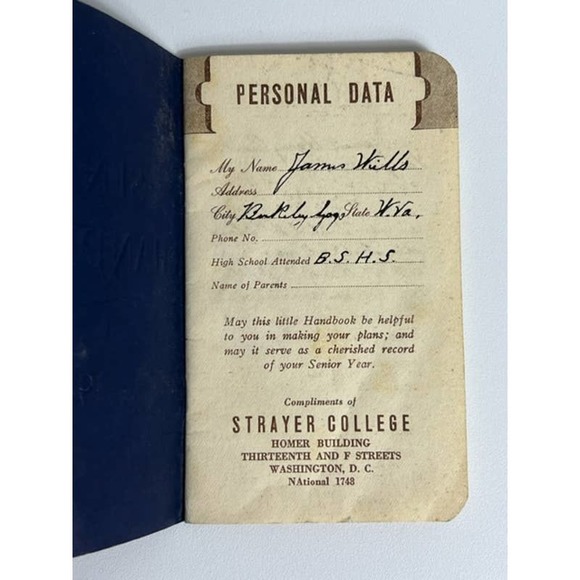 PERSONAL DATA
My Name James Wills
Address
City Berkeley Spgs, State W. Va.
Phone No.
High School Attended B. S. H. S.
Name of Parents
May this little Handbook be helpful
to you in making your plans; and
may it serve as a cherished record
of your Senior Year.
Compliments of
STRAYER COLLEGE
HOMER BUILDING
THIRTEENTH AND F STREETS
WASHINGTON, D. C.
NAtional 1748